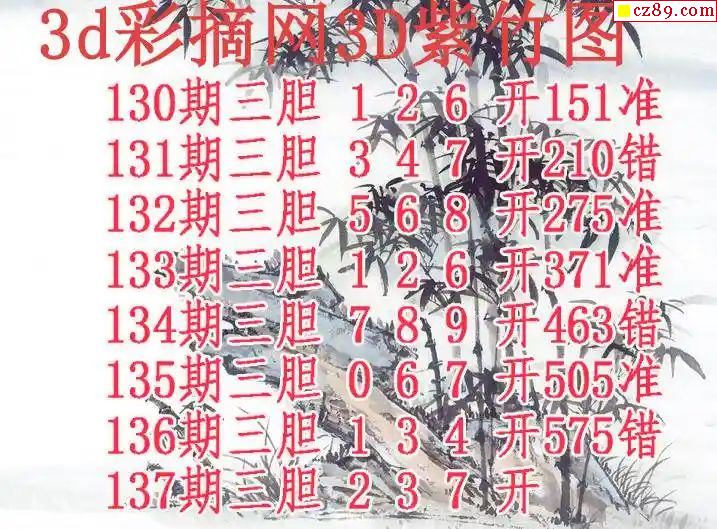 cz89.com
3d彩摘网3D紫竹图
130期三胆 1 2 6 开151准
131期三胆 3 4 7 开210错
132期三胆 5 6 8 开275准
133期三胆 1 2 6 开371准
134期三胆 7 8 9 开463错
135期三胆 0 6 7 开505准
136期三胆 1 3 4 开575错
137期三胆 2 3 7 开